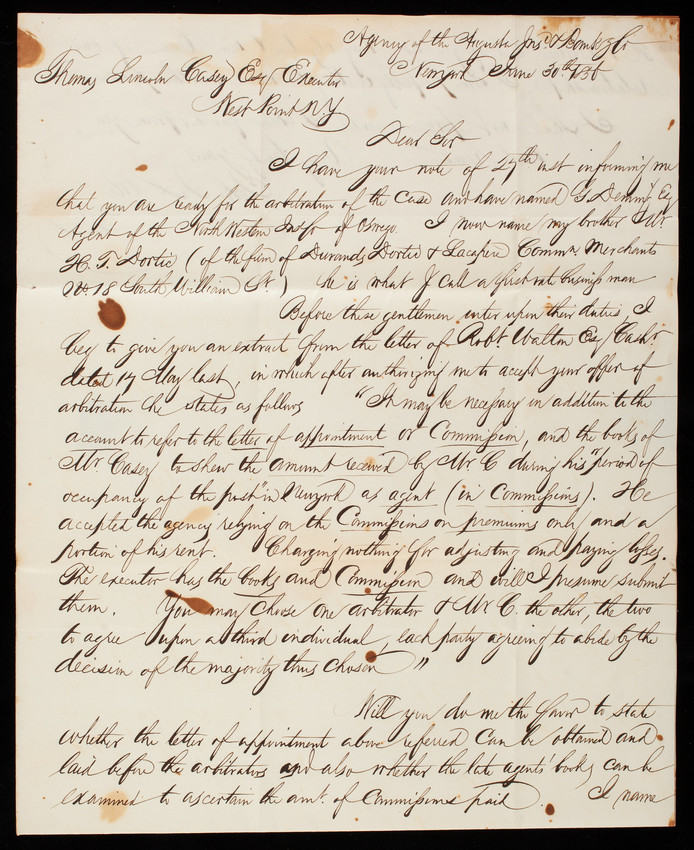 Agency of the Augusta Insce & Banking Co
Newyork June 30th 1856
Thomas Lincoln Casey Esq Executor
West Point N Y
Dear Sir
I have your note of 27th inst informing me
that you are ready for the arbitration of the case and have named G. Deming Esq
Agent of the North Western Ins Co of Oswego. I now name my brother Mr
H. T. Dortic (of the firm of Durand, Dortic & Lacapere Commn. Merchants
No. 18 South William St.) he is what I call a first rate business man
Before these gentlemen enter upon their duties, I
beg to give you an extract from the letter of Robt Walton Esq Cashr.
dated 17 May last, in which after authorizing me to accept your offer of
arbitration he states as follows "It may be necessary in addition to the
account to refer to the letter of appointment or Commission, and the books of
Mr Casey to shew the amount received by Mr C during his "period of
occupancy of the post" in Newyork as agent (in Commissions). He
accepted the agency relying on the Commissions on premiums only and a
portion of his rent. Charging nothing for adjusting and paying losses.
The executor has the books and Commission and will I presume submit
them. You may choose one arbitrator & Mr C. the other, the two
to agree upon a third individual, each party agreeing to abide by the
decision of the majority thus chosen"
Will you do me the favor to state
whether the letter of appointment above referred can be obtained and
laid before the arbitrators and also whether the late agents' books can be
examined to ascertain the amt. of Commissions paid. I name